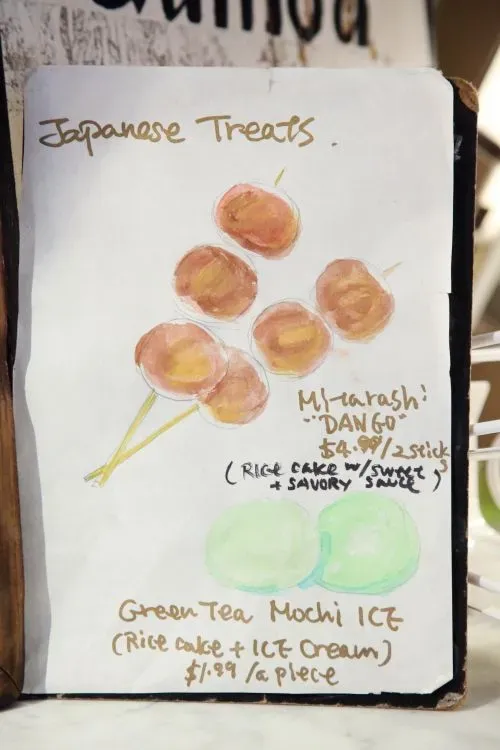 Quinoa
Japanese Treats.
Mitarashi
"DANGO"
$4.99/2sticks
(RICE CAKE W/SWEET
+ SAVORY SAUCE)
Green Tea Mochi ICE
(Rice cake + ICE Cream)
$1.99/a piece